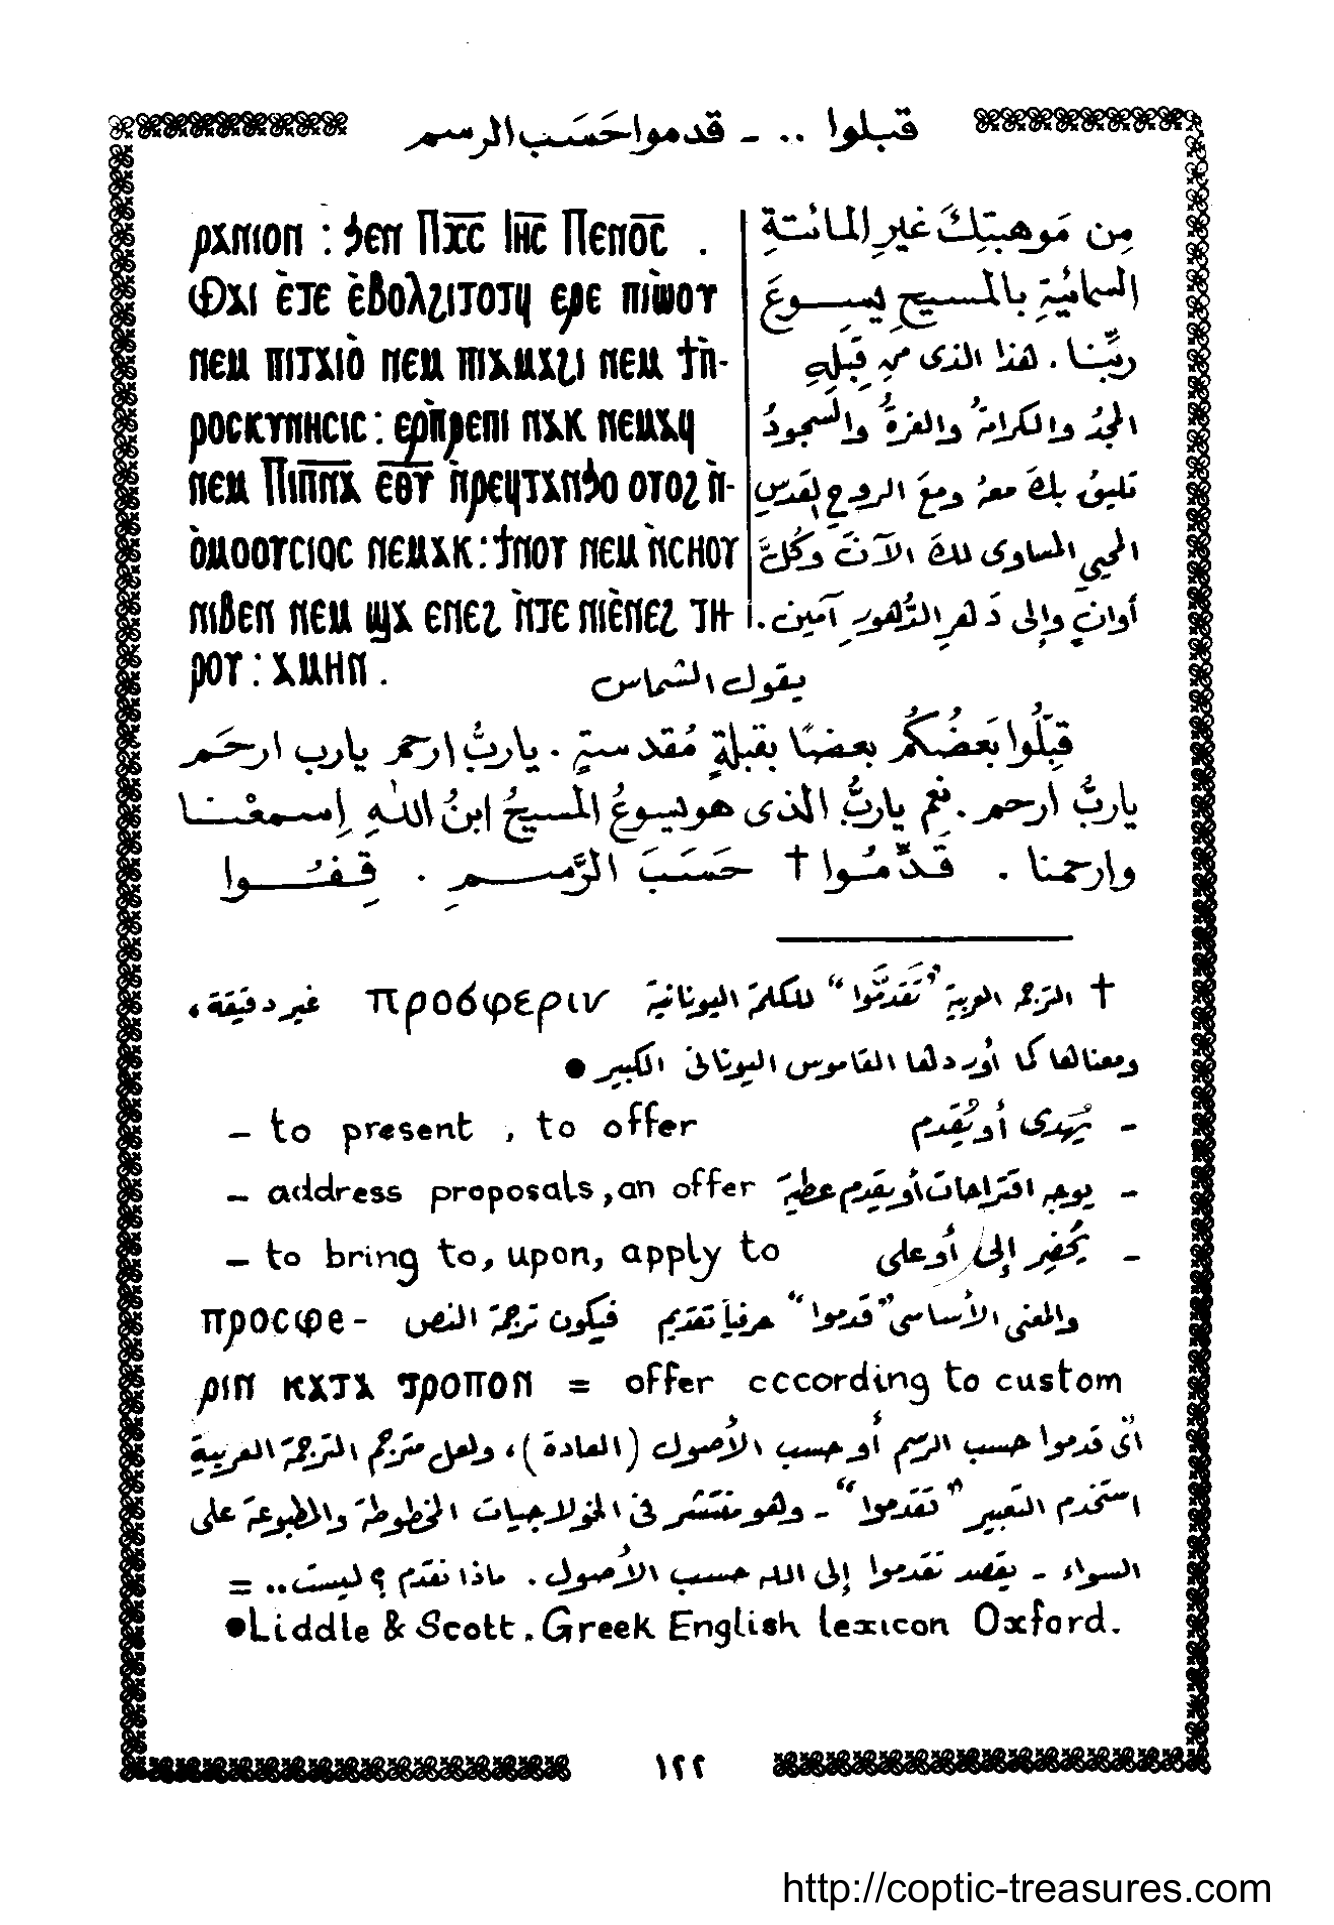 قبلوا .. - قدموا حَسَب الرسم
ⲣⲁⲛⲓⲟⲛ : ϧⲉⲛ Ⲡⲭ̅ⲥ̅ Ⲓⲏ̅ⲥ̅ Ⲡⲉⲛⲟ̅ⲥ̅ .
Ⲫⲁⲓ ⲉ̀ⲧⲉ ⲉ̀ⲃⲟⲗϩⲓⲧⲟⲧϥ ⲉⲣⲉ ⲡⲓⲱ̀ⲟⲩ
ⲛⲉⲙ ⲡⲓⲧⲁⲓⲟ̀ ⲛⲉⲙ ⲡⲓⲁⲙⲁϩⲓ ⲛⲉⲙ ϯⲡ̀-
ⲣⲟⲥⲕⲩⲛⲏⲥⲓⲥ : ⲉⲣⲡ̀ⲣⲉⲡⲓ ⲛⲁⲕ ⲛⲉⲙⲁϥ
ⲛⲉⲙ Ⲡⲓⲡ̅ⲛ̅ⲁ̅ ⲉ̅ⲑ̅ⲩ̅ ⲛ̀ⲣⲉϥⲧⲁⲛϧⲟ ⲟⲩⲟϩ ⲛ̀-
ⲟ̀ⲙⲟⲟⲩⲥⲓⲟⲥ ⲛⲉⲙⲁⲕ : ϯⲛⲟⲩ ⲛⲉⲙ ⲛ̀ⲥⲏⲟⲩ
ⲛⲓⲃⲉⲛ ⲛⲉⲙ ϣⲁ ⲉⲛⲉϩ ⲛ̀ⲧⲉ ⲛⲓⲉ̀ⲛⲉϩ ⲧⲏ-
ⲣⲟⲩ : ⲁⲙⲏⲛ .
مِن مَوهبتِكَ غيرِ المائتةِ
السمائيةِ بالمسيحِ يسوعَ
ربِّنا . هذا الذى من قِبَلِهِ
المجدُ والكرامةُ والعزةُ والسجودُ
تليقُ بكَ معهُ ومعَ الروحِ القدسِ
المحيي المساوى لكَ الآنَ وكُلَّ
أوانٍ وإلى دَهرِ الدُّهورِ آمين .
يقول الشماس
قبِّلُوا بَعضُكُم بعضًا بقبلةٍ مُقدستةٍ . ياربُّ ارحم يارب ارحَم
ياربُّ ارحم . نعم ياربُّ الذى هو يسوعُ المسيحُ ابنُ اللهِ إسمعْنا
وارحمنا . قَدِّمُوا † حَسَبَ الرَّسمِ . قِفُوا
† الترجمه العربية "تَقَدَّموا" للكلمة اليونانية προσφεριν غير دقيقة ،
ومعناها كما أوردها القاموس اليونانى الكبير ●
- to present , to offer - يُهدى أو يُقدم
- address proposals, an offer - يوجه اقتراحات أو يقدم عطية
- to bring to, upon, apply to - يُحضِر إلى أو على
والمعنى الأساسى "قدموا" حرفياً تقديم فيكون ترجمة النص ⲡⲣⲟⲥⲫⲉ-
ⲣⲓⲛ ⲕⲁⲧⲁ ⲧⲣⲟⲡⲟⲛ = offer cccording to custom
اى قدموا حسب الرسم أو حسب الأصول (العادة)، ولعل مترجم الترجمة العربية
استخدم التعبير "تقدموا" - وهو منتشر فى الخولاجيات المخطوطة والمطبوعة على
السواء - يقصد تقدموا إلى الله حسب الأصول . ماذا نقدم ؟ ليست .. =
●Liddle & Scott. Greek English lexicon Oxford.
١٢٢
http://coptic-treasures.com